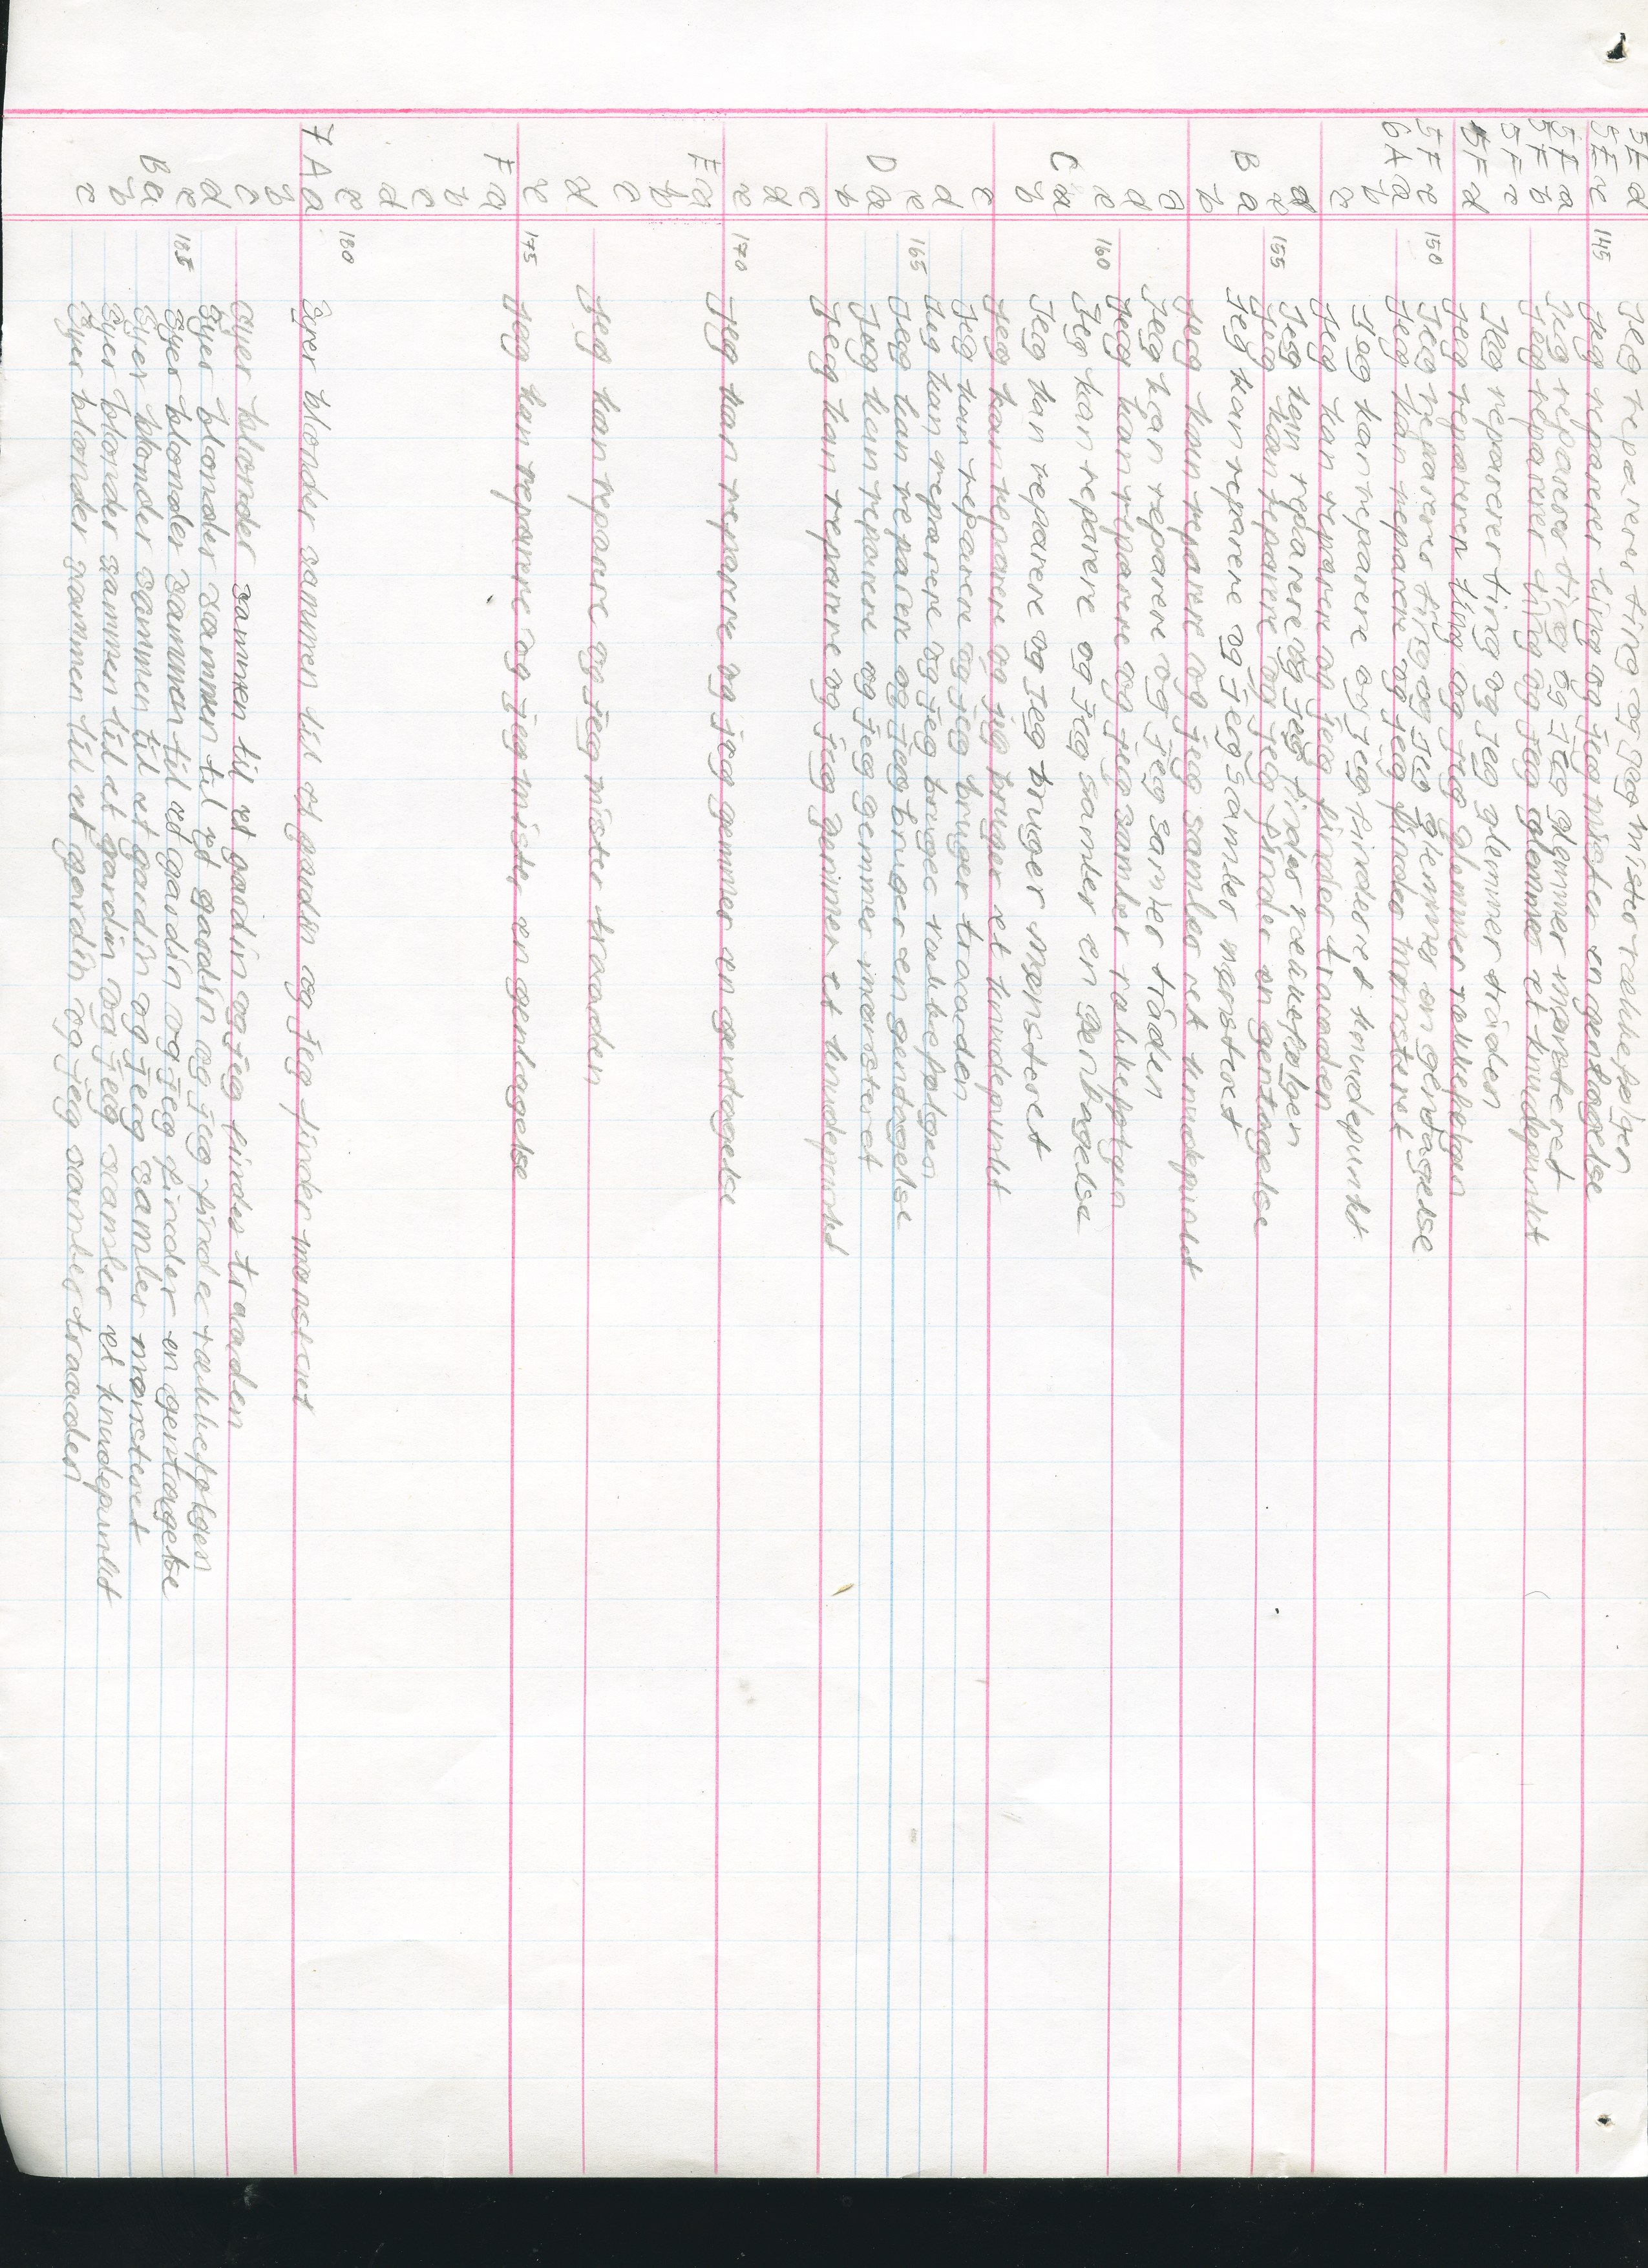 5E d jeg reparerer ting og jeg mister rækkefølgen
5E e 145 jeg reparerer ting og jeg mister en gentagelse
5F a Jeg reparerer ting og jeg glemmer mønsteret
5F b jeg reparerer ting og jeg glemmer et knudepunkt
5F c Jeg reparerer ting og jeg glemmer tråden
5F d jeg reparerer ting og jeg glemmer rækkefølgen
5F e 150 Jeg reparerer ting og jeg glemmer en gentagelse
6A a jeg kan reparere og jeg finder mønsteret
b Jeg kan reparere og jeg finder et knudepunkt
c jeg kan reparere og jeg finder traaaden
d Jeg kan reparere og jeg finder rækkefølgen
e 155 jeg kan reparere og jeg finder en gentagelse
B a jeg kan reparere og jeg samler mønsteret
b jeg kan reparere og jeg samler et knudepunkt
c jeg kan reparere og jeg samler tråden
d jeg kan reparere og jeg samler rækkefølgen
e 160 Jeg kan reparere og jeg samler en gentagelse
C a Jeg kan reparere og jeg bruger mønsteret
b jeg kan reparere og jeg bruger et knudepunkt
c jeg kan reparere og jeg bruger traaaden
d Jeg kan reparere og jeg bruger rækkefølgen
e 165 jeg kan reparere og jeg bruger en gentagelse
D a jeg kan reparere og jeg gemmer mønsteret
b jeg kan reparere og jeg gemmer et knudepunkt
c
d
e 170 jeg kan reparere og jeg gemmer en gentagelse
E a
b
c jeg kan reparere og jeg mister traaaden
d
e 175 jeg kan reparere og jeg mister en gentagelse
F a
b
c
d
e 180
7 A a Syer blonder sammen til et gardin og jeg finder mønsteret
b
c syer blonder sammen til et gardin og jeg finder traaaden
d Syer blonder sammen til et gardin og jeg finder rækkefølgen
e 185 Syer blonder sammen til et gardin og jeg finder en gentagelse
B a Syer blonder sammen til et gardin og jeg samler mønsteret
b Syer blonder sammen til et gardin og jeg samler et knudepunkt
c Syer blonder sammen til et gardin og jeg samler traaaden